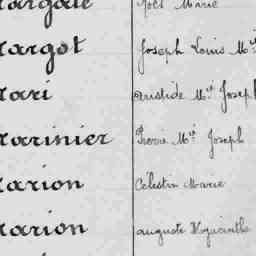 argot Joseph Louis M
ari Aristide M Joseph
arinier Pierre M Joseph
arion Célestin Marie
arion auguste Hyacinthe